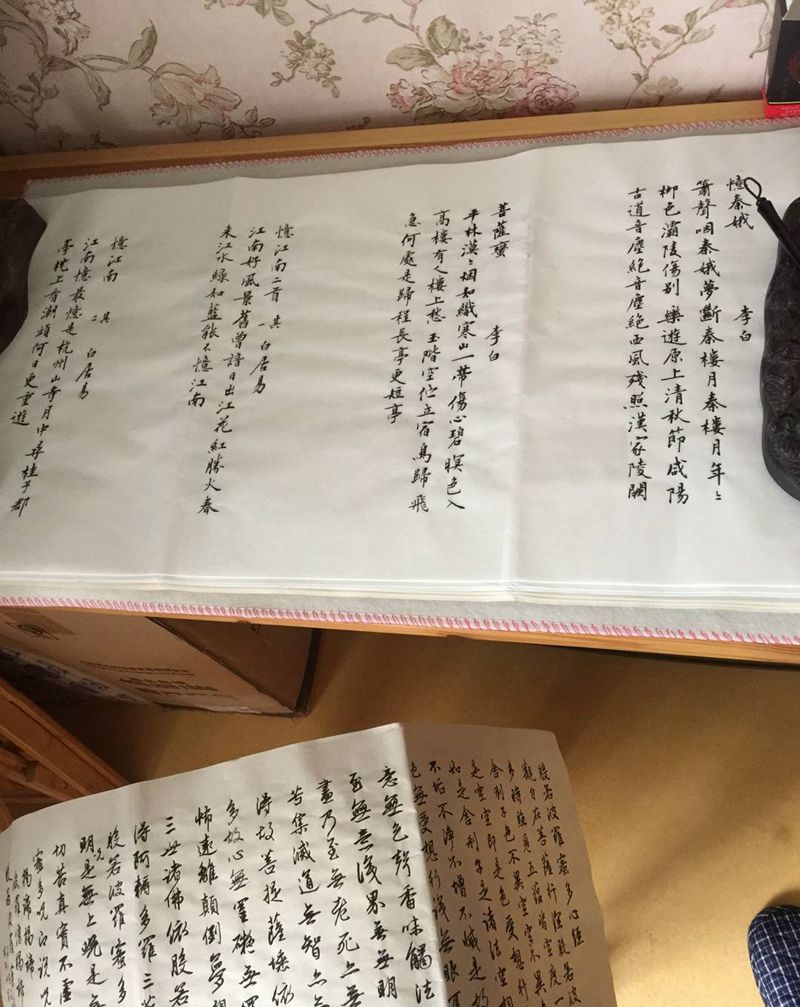 憶秦娥 李白
簫聲咽秦娥夢斷秦楼月秦楼月年〻
柳色灞陵傷別 樂遊原上清秋節咸陽
古道音塵絕音塵絕西風残照漢家陵闕
菩薩蠻 李白
平林漠〻烟如織寒山一帶傷心碧暝色入
高楼有人楼上愁 玉階空佇立宿鳥歸飛
急何處是歸程長亭更短亭
憶江南二首 其一 白居易
江南好風景舊曾諳日出江花紅勝火春
来江水綠如藍能不憶江南
憶江南 其二 白居易
江南憶最憶是杭州山寺月中尋桂子郡
亭枕上看潮頭何日更重遊
般若波羅蜜多心經
觀自在菩薩行深般若波
多時照見五蘊皆空度一
舍利子色不異空空不異
是空空即是色受想行
如是舍利子是諸法空相
不垢不淨不增不減是故
色無受想行識無眼耳
意無色聲香味觸法
至無意識界無無明
盡乃至無老死亦無
苦集滅道無智亦無
得故菩提薩埵依
多故心無罣礙無罣
怖遠離顛倒夢想
三世諸佛依般若
得阿耨多羅三藐
般若波羅蜜多
明咒是無上咒是無
切苦真實不虛
蜜多咒即說咒
揭諦揭諦
波羅僧揭諦